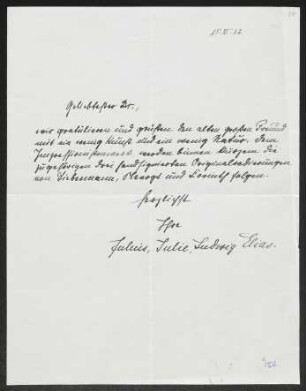 15. III. 22
Geliebtester Dr.,
wir gratulieren und grüßen den alten großen Freund
mit ein wenig Kunst und ein wenig Natur. Dem
werden binnen kurzem die
zugehörigen drei handsignierten Originalradierungen
von Liebermann, Slevogt und Corinth folgen.
herzlichst
Ihre
Julius, Julie, Ludwig Elias.